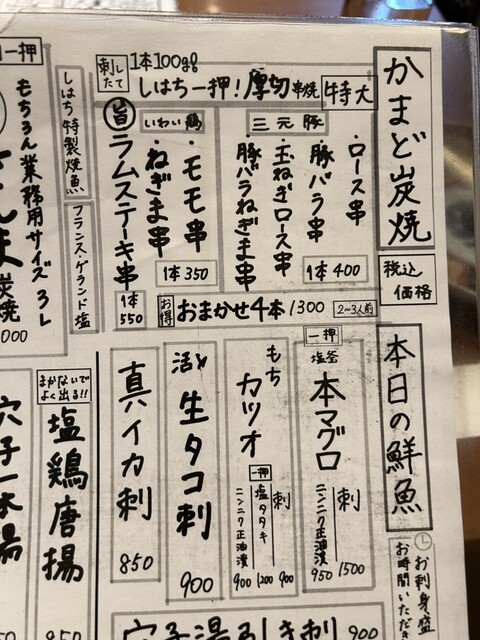 かまど炭焼
税込価格
刺したて
1本100g!
しはち一押!厚切串焼
特大
三元豚
・ロース串
豚バラ串
・玉ねぎロース串
豚バラねぎま串
1本400
いわい鶏
・モモ串
・ねぎま串
1本350
旨
ラムステーキ串
1本550
お得
おまかせ4本1300
2〜3人前
一押
もちろん業務用サイズ3L
炭焼
しはち特製焼魚
フランス・ゲランド塩
本日の鮮魚
お刺身盛
お時間いただ
一押
塩釜
本マグロ
刺 1500
ニンニク正油漬 950
もち
カツオ
刺 900
一押
塩タタキ 1200
ニンニク正油漬 900
活〆
生タコ刺
900
真イカ刺
850
まかないでよく出る!!
塩鶏唐揚
穴子一本揚
穴子湯引き刺
900